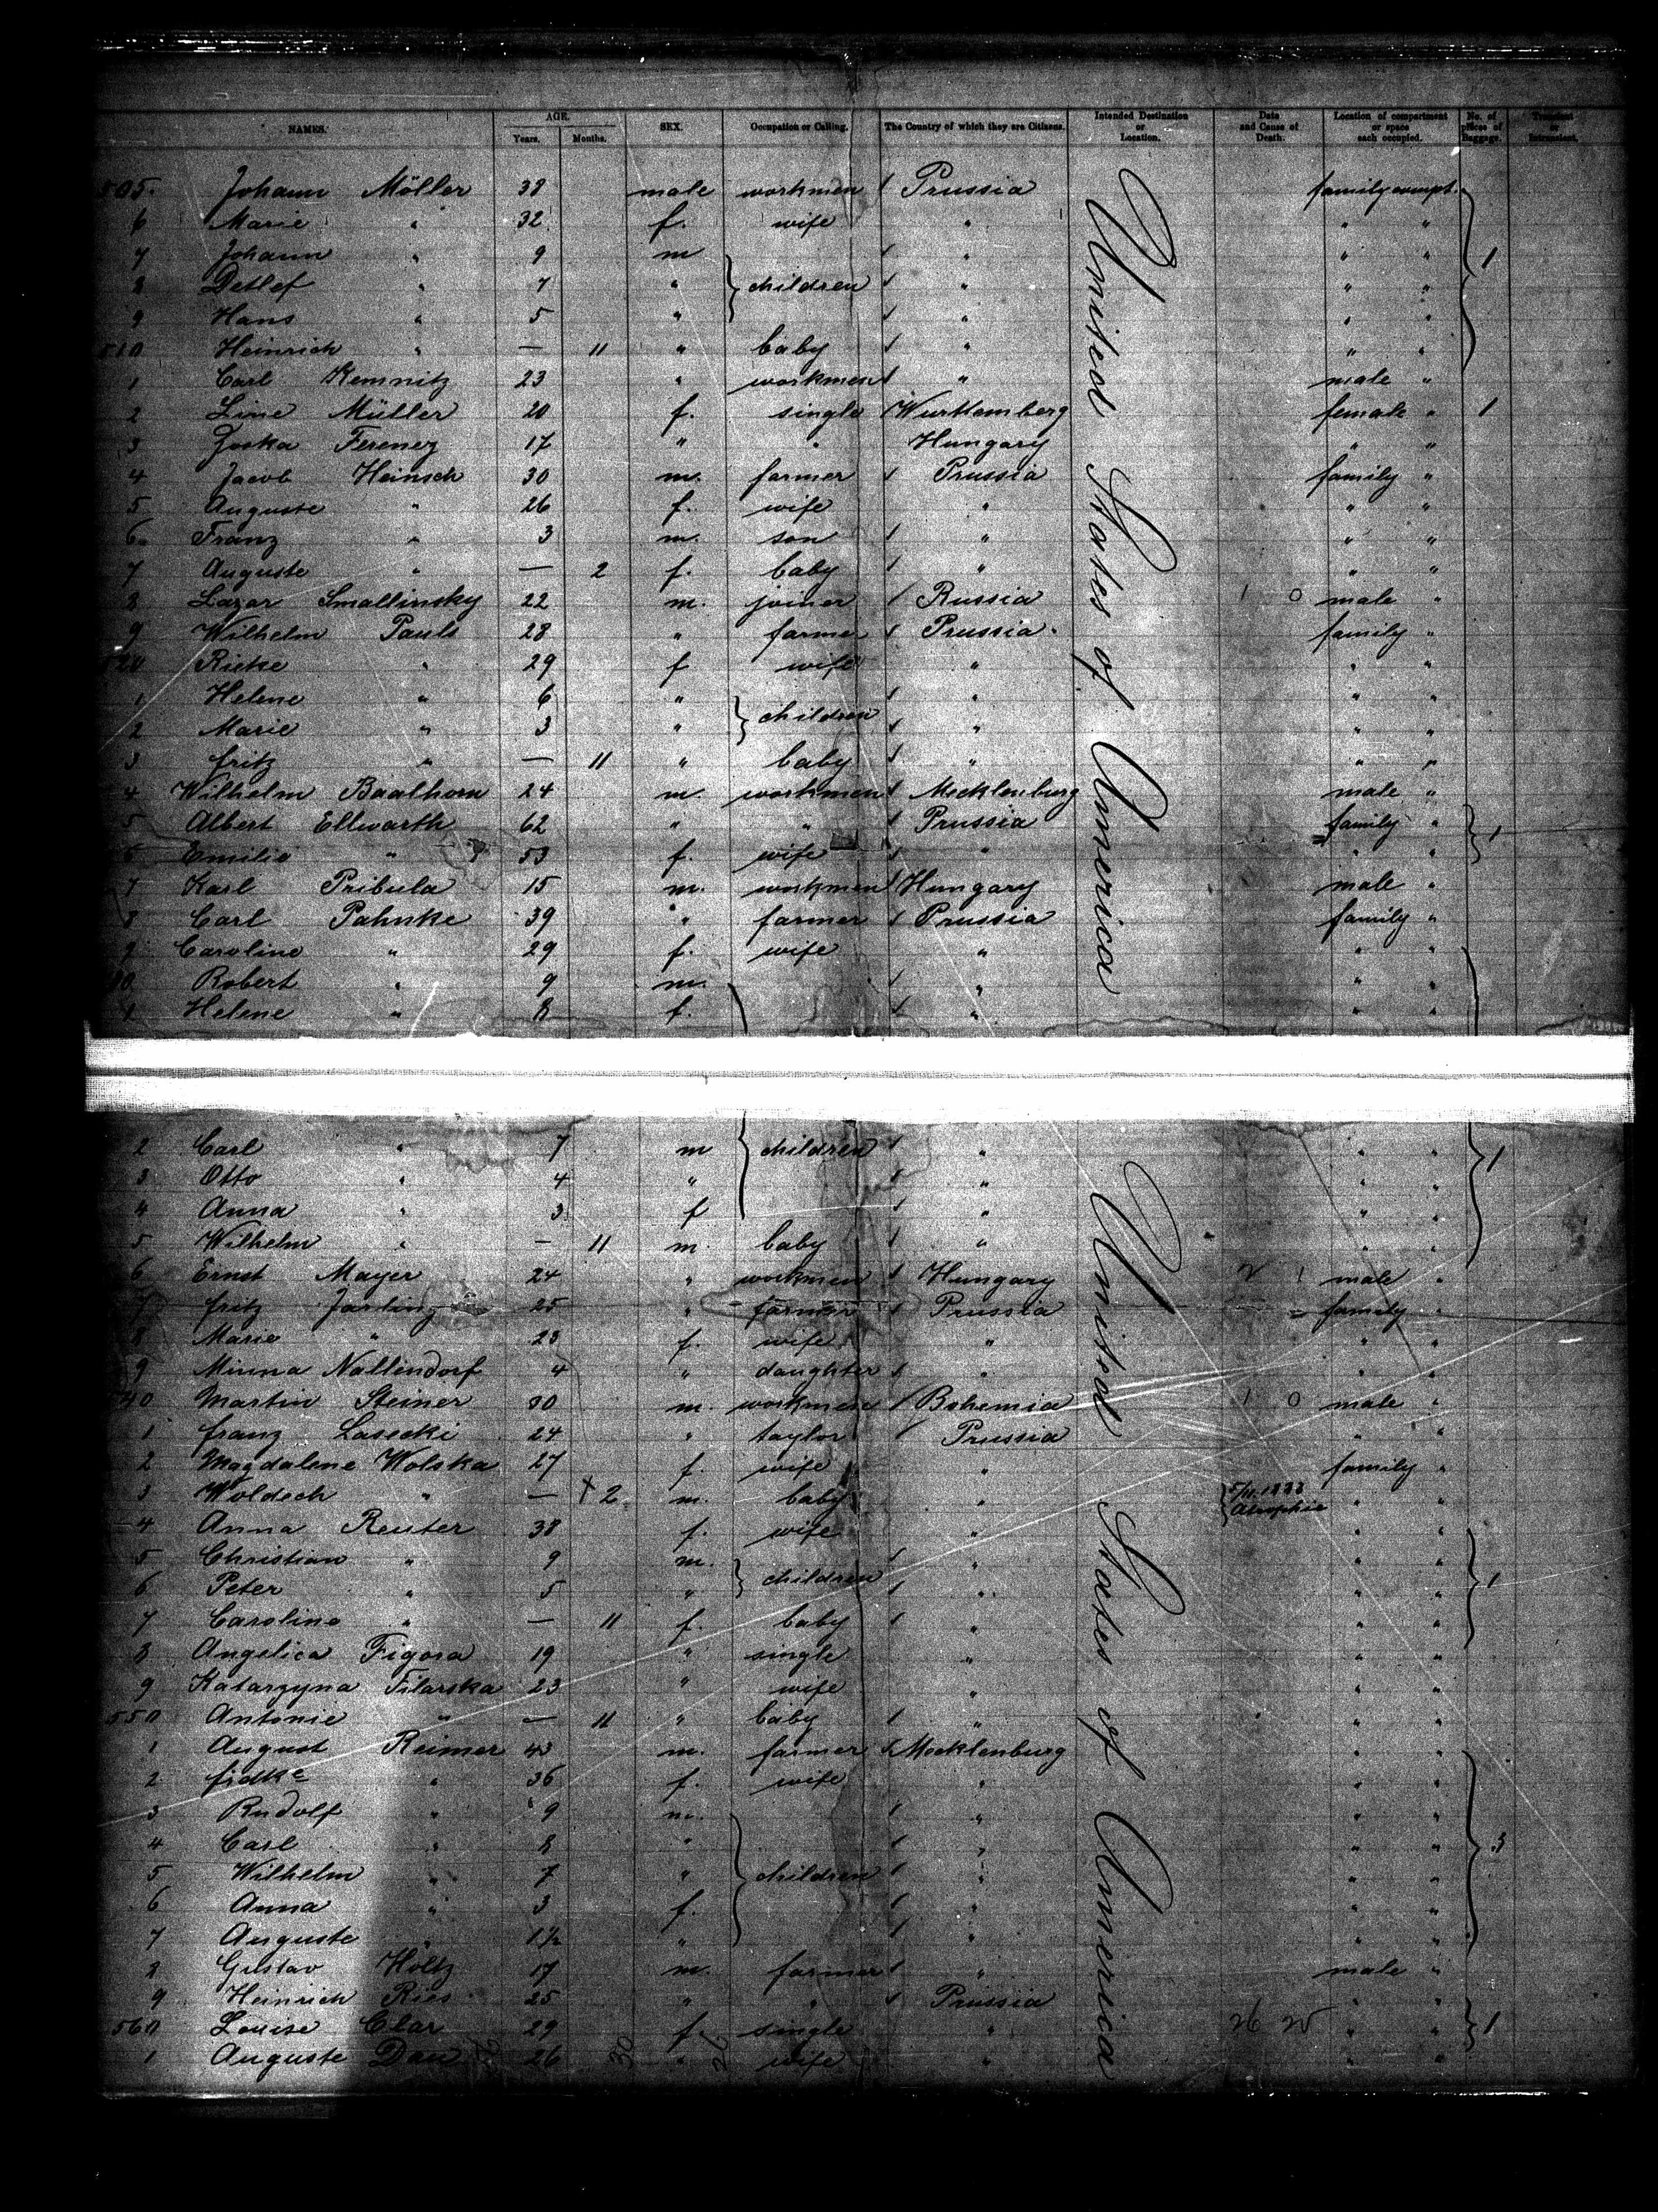 NAMES. AGE. Years. Months. SEX. Occupation or Calling. The Country of which they are Citizens. Intended Destination or Location. Date and Cause of Death. Location of compartment or space each occupied. No. of pieces of Baggage. Transient or
505. Johann Möller 38 male workmen Prussia family compt.
6 Marie " 32 f. wife " " "
7 Johann " 9 m " " " 1
8 Detlef " 7 " children " " "
9 Hans " 5 " " " "
510 Heinrich " — 11 " baby " " "
1 Carl Kemnitz 23 " workmen " male "
2 Line Müller 20 f. single Wurttemberg female " 1
3 Ferencz 17 " " Hungary " "
4 Jacob Heinsch 30 m. farmer Prussia family "
5 Auguste " 26 f. wife " " "
6 Franz " 3 m. son " " "
7 Auguste " — 2 f. baby " " "
8 Lazar Smallinsky 22 m. joiner Russia 1 0 male "
9 Wilhelm Pauls 28 " farmer Prussia family "
520 Rieke " 29 f wife " " "
1 Helene " 6 " children " " "
2 Marie " 3 " " " "
3 fritz " — 11 " baby " " "
4 Wilhelm Baalhorn 24 m. workmen Mecklenburg male "
5 Albert Ellwarth 62 " " Prussia family " 1
6 Emilie " 53 f. wife " " "
7 Karl Pribula 15 m. workmen Hungary male "
8 Carl Pahnke 39 " farmer Prussia family "
9 Caroline " 29 f. wife " " "
30 Robert " 9 m. " " "
1 Helene " 8 f. " " "
United States of America
2 Carl " 7 m children " " " 1
3 Otto " 4 " " " "
4 Anna " 3 f " " "
5 Wilhelm " — 11 m. baby " " "
6 Ernst Mayer 24 " workmen Hungary 2 1 male "
7 fritz Jarling 25 " farmer Prussia family "
8 Marie " 23 f. wife " " "
9 Minna Nallendorf 4 " daughter " " "
540 Martin Steiner 30 m. workmen Bohemia 1 0 male "
1 franz Lasecki 24 " taylor Prussia " "
2 Magdalene Wolska 27 f wife " family "
3 Woldech " — + 2 m. baby " 5/11.1883 Atrophie " "
4 Anna Reuter 38 f. wife " " "
5 Christian " 9 m. children " " " 1
6 Peter " 5 " " " "
7 Caroline " — 11 f. baby " " "
8 Angelica Figora 19 " single " " "
9 Katarzyna Filarska 23 " wife " " "
550 Antonie " — 11 " baby " " "
1 August Reimer 43 m. farmer Mecklenburg " "
2 fidke " 36 f. wife " " "
3 Rudolf " 9 m. " " "
4 Carl " 8 " " " " 3
5 Wilhelm " 7 " children " " "
6 Anna " 3 f. " " "
7 Auguste " 1½ " " " "
8 Gustav Holtz 17 m. farmer " male "
9 Heinrich Ries 25 " " Prussia " "
560 Louise Clar 29 f single " 26 25 " " 1
1 Auguste Dau 26 " wife " " "
30 26
United States of America